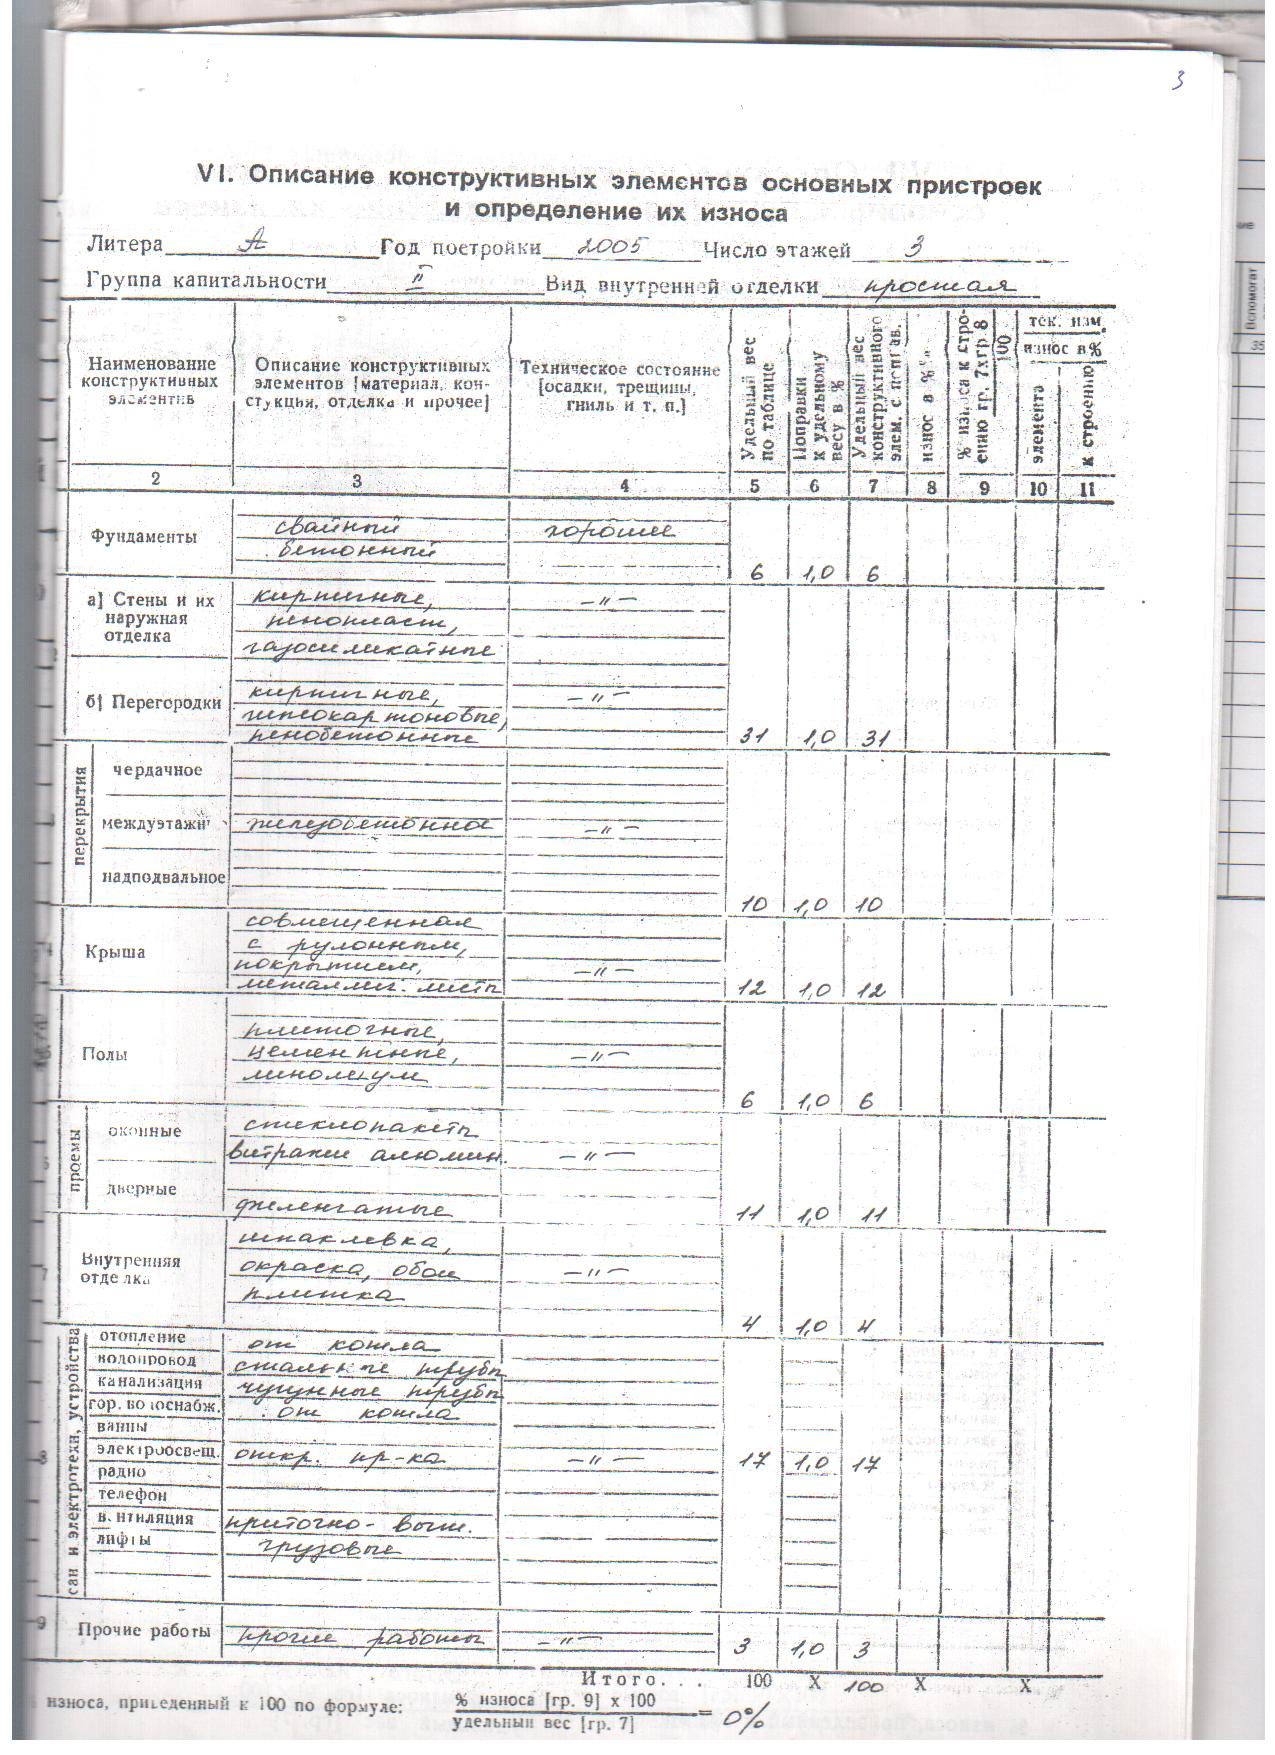 3
VI. Описание конструктивных элементов основных пристроек
и определение их износа
Литера А Год постройки 2005 Число этажей 3
Группа капитальности II Вид внутренней отделки простая
Наименование конструктивных элементов
Описание конструктивных элементов [материал, кон-
стукция, отделка и прочее]
Техническое состояние
[осадки, трещины,
гниль и т. п.]
Удельный вес по таблице
Поправки к удельному весу в %
Удельный вес конструктивного элем. с поправ.
износ в %
% износа к строению гр. 7хгр. 8 100
тек. изм.
износ в %
элемента
к строению
2 3 4 5 6 7 8 9 10 11
Фундаменты свайный бетонный хорошее 6 1,0 6
а] Стены и их
наружная
отделка
кирпичные, -"-
пенопласт,
газосиликатные
б] Перегородки кирпичные, -"-
гипсокартоновые,
пенобетонные 31 1,0 31
перекрытия
чердачное
междуэтажн железобетонное -"-
надподвальное
10 1,0 10
Крыша
совмещенная
с рулонным,
покрытием, -"-
металлич. листы 12 1,0 12
Полы
плиточные,
цементные, -"-
линолеум
6 1,0 6
проемы
оконные стеклопакеты
витражи алюмин. -"-
дверные
филенчатые 11 1,0 11
Внутренняя
отделка
шпаклевка,
окраска, обои -"-
плитка
4 1,0 4
сан и электротехн. устройства
отопление от котла
водопровод стальные трубы
канализация чугунные трубы
гор. водоснабж. от котла
ванны
электроосвещ. откр. пр-ка -"- 17 1,0 17
радио
телефон
вентиляция приточно-выт.
лифты грузовые
9 Прочие работы прочие работы -"- 3 1,0 3
Итого... 100 X 100 X X
износа, приведенный к 100 по формуле: % износа [гр. 9] х 100
удельный вес [гр. 7] = 0%
Вспомогат
35